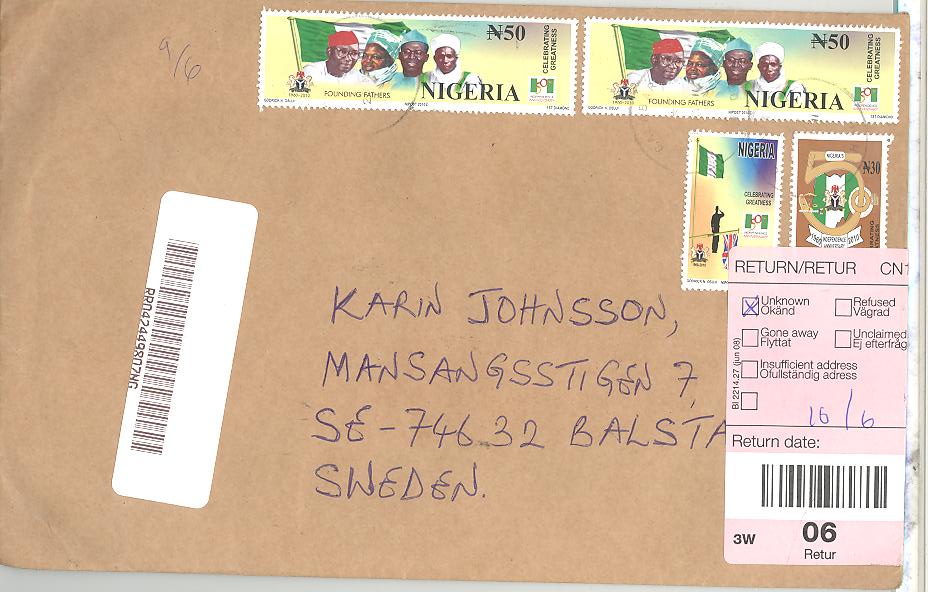 9/6
₦50
CELEBRATING
GREATNESS
1960-2010
FOUNDING FATHERS
NIGERIA
₦50
CELEBRATING
GREATNESS
1960-2010
FOUNDING FATHERS
NIGERIA
NIGERIA
CELEBRATING
GREATNESS
NIGERIA'S
₦30
INDEPENDENCE
ANNIVERSARY
1960
2010
RR042449807NG
KARIN JOHNSSON,
MANSANGSSTIGEN 7,
SE-746 32 BALSTA
SWEDEN.
RETURN/RETUR CN1
Unknown
Okänd
Refused
Vägrad
Gone away
Flyttat
Unclaimed
Ej efterfråg
Insufficient address
Ofullständig adress
BI 2214.27 (jun 08)
10/6
Return date:
3W 06
Retur